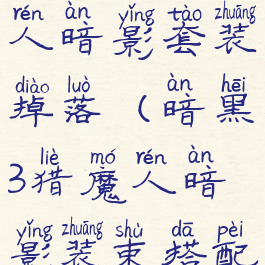 rén àn yǐng tào zhuāng
人暗影套装
diào luò àn hēi
掉落（暗黑
liè mó rén àn
3猎魔人暗
yǐng zhuāng shù dā pèi
影装束搭配